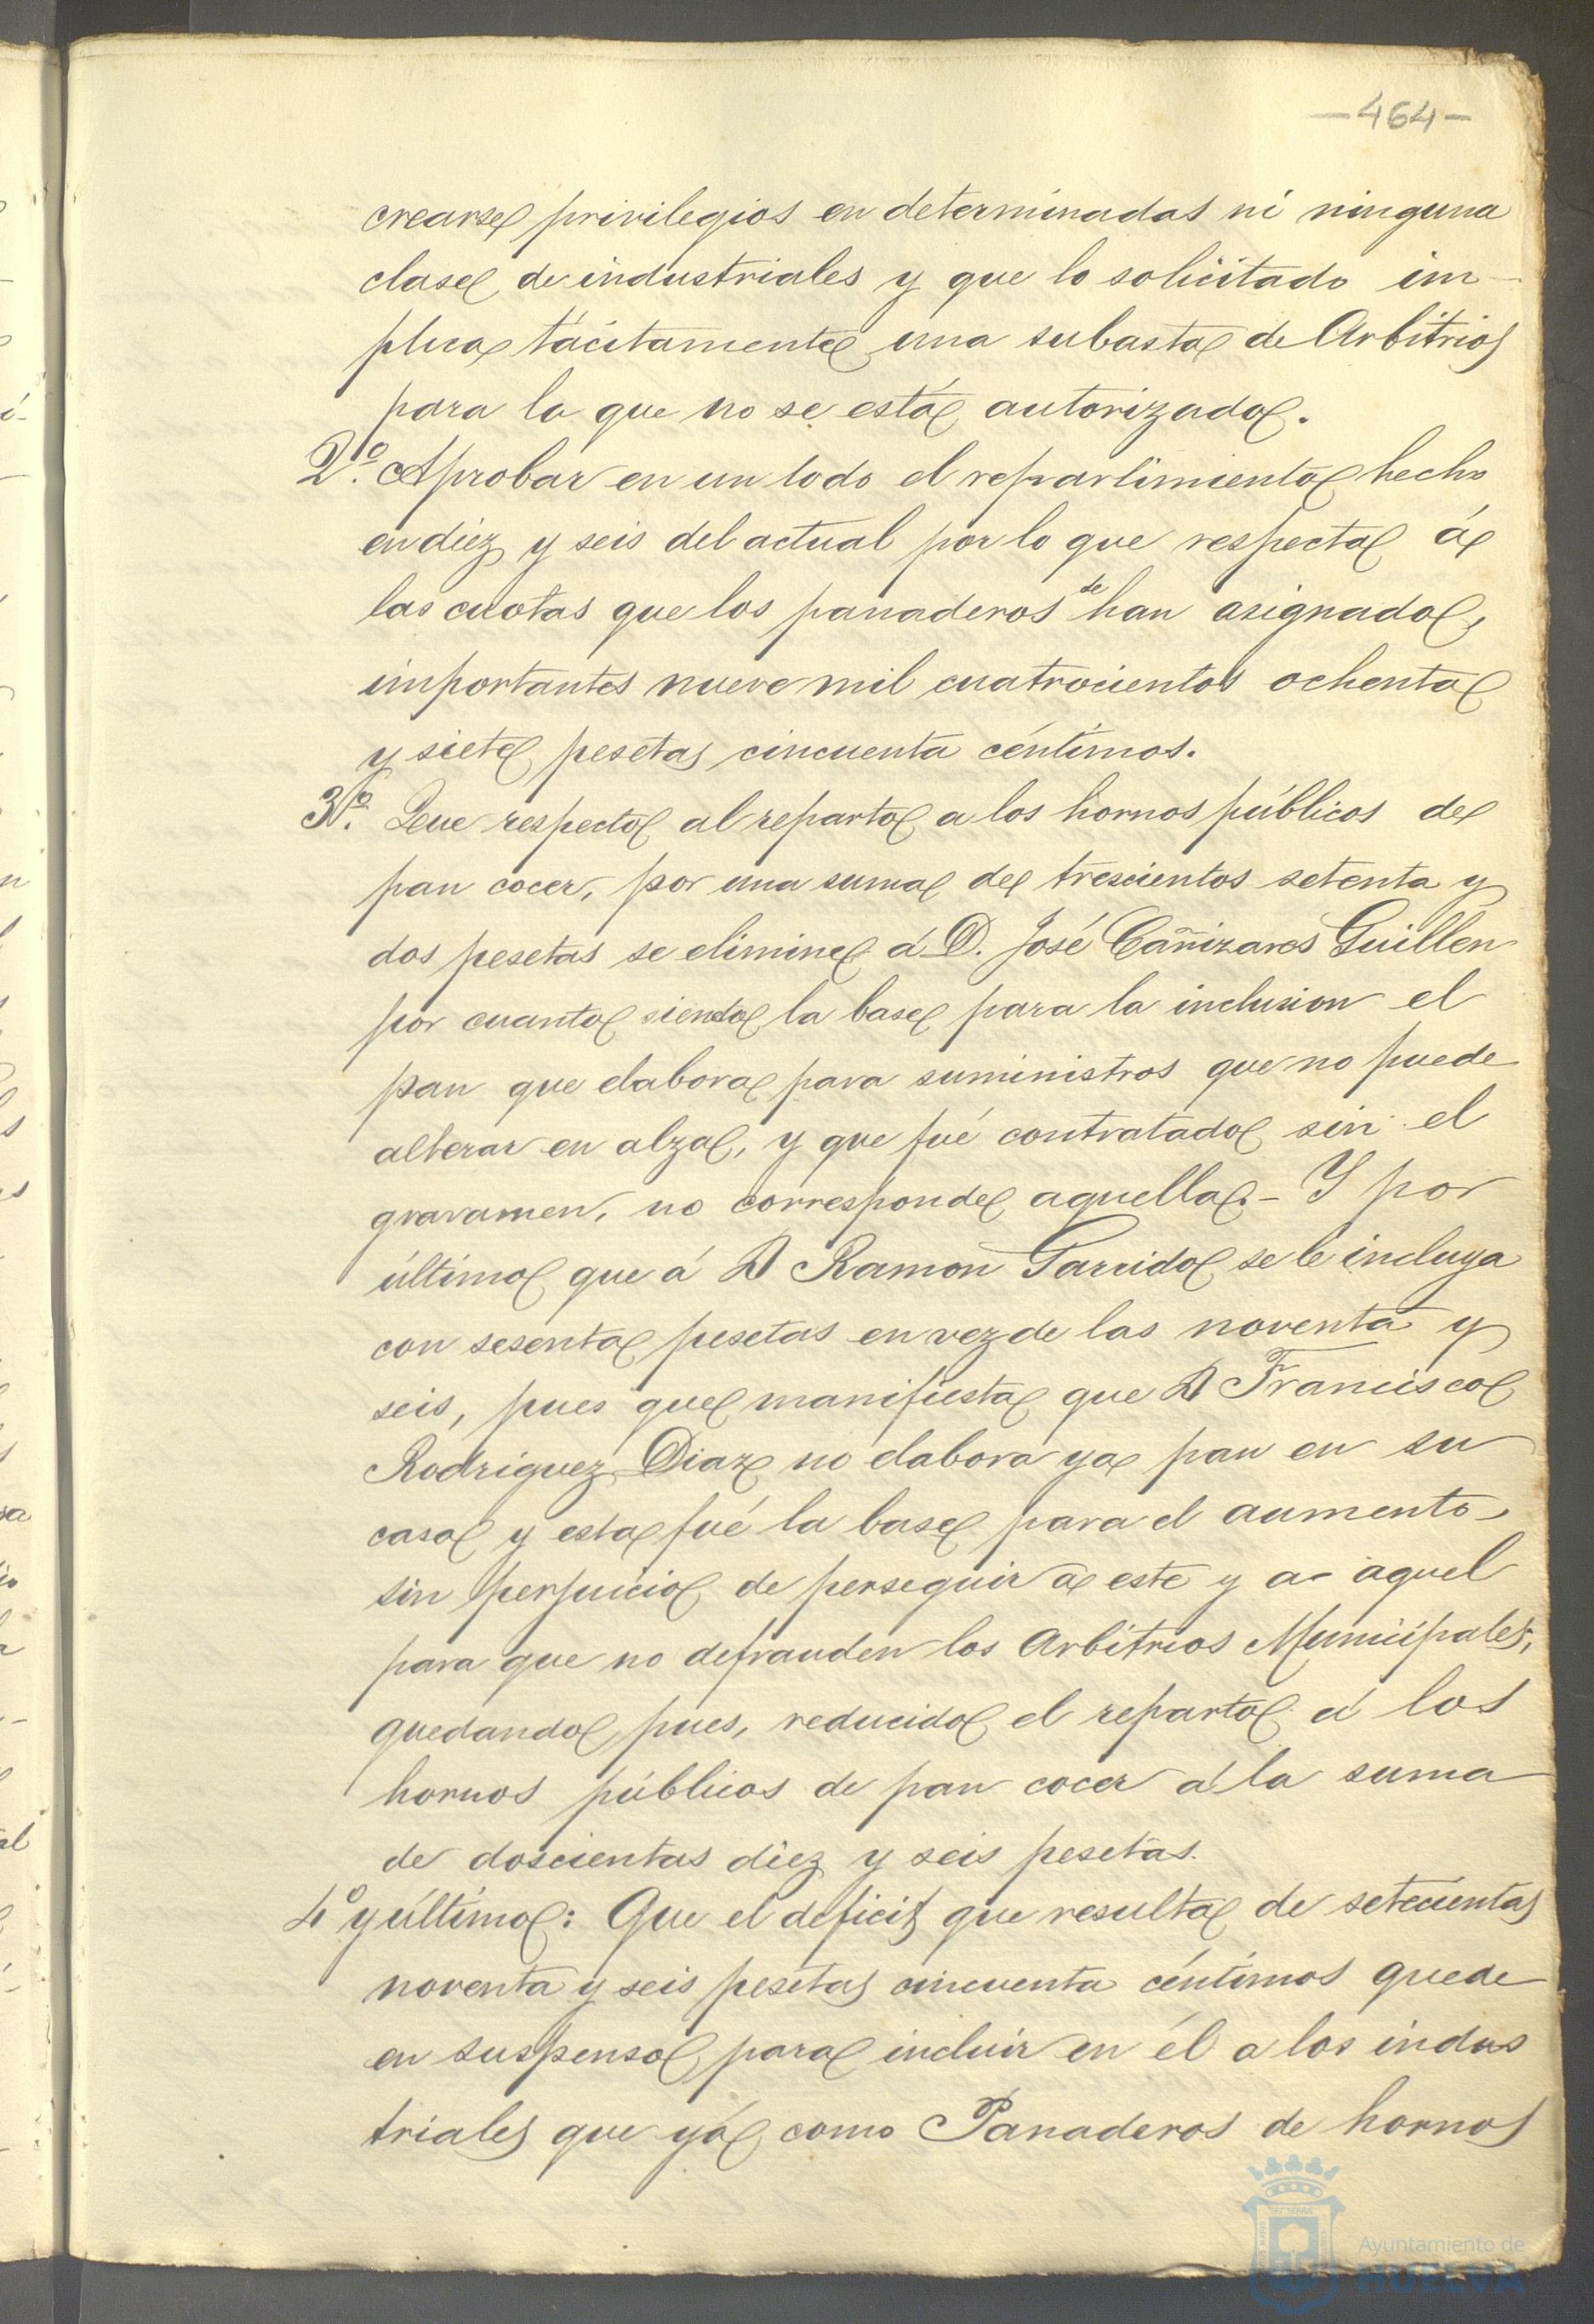 —464—
crearse privilegios en determinadas ni ninguna
clase de industriales y que lo solicitado im-
plica tácitamente una subasta de Arbitrios
para la que no se está autorizado.
2.º Aprobar en un todo el repartimiento hecho
en diez y seis del actual por lo que respecta á
las cuotas que los panaderos se han asignado,
importantes nueve mil cuatrocientos ochenta
y siete pesetas cincuenta céntimos.
3.º Que respecto al reparto a los hornos públicos de
pan cocer, por una suma de trescientos setenta y
dos pesetas se elimine á D. José Cañizares Guillen
por cuanto siendo la base para la inclusion el
pan que elabora para suministros que no puede
alterar en alza, y que fué contratado sin el
gravamen, no corresponde aquella.- Y por
último que á D Ramon Garrido se le incluya
con sesenta pesetas en vez de las noventa y
seis, pues que manifiesta que D Francisco
Rodriguez Diaz no elabora ya pan en su
casa y esta fué la base para el aumento,
sin perjuicio de perseguir a este y a aquel
para que no defrauden los Arbitrios Municipales,
quedando, pues, reducido el reparto á los
hornos públicos de pan cocer á la suma
de doscientas diez y seis pesetas.
4º y último: Que el deficit que resulta de setecientas
noventa y seis pesetas cincuenta céntimos quede
en suspenso, para incluir en él a los indus
triales que yá como Panaderos de hornos
Ayuntamiento de
HUELVA